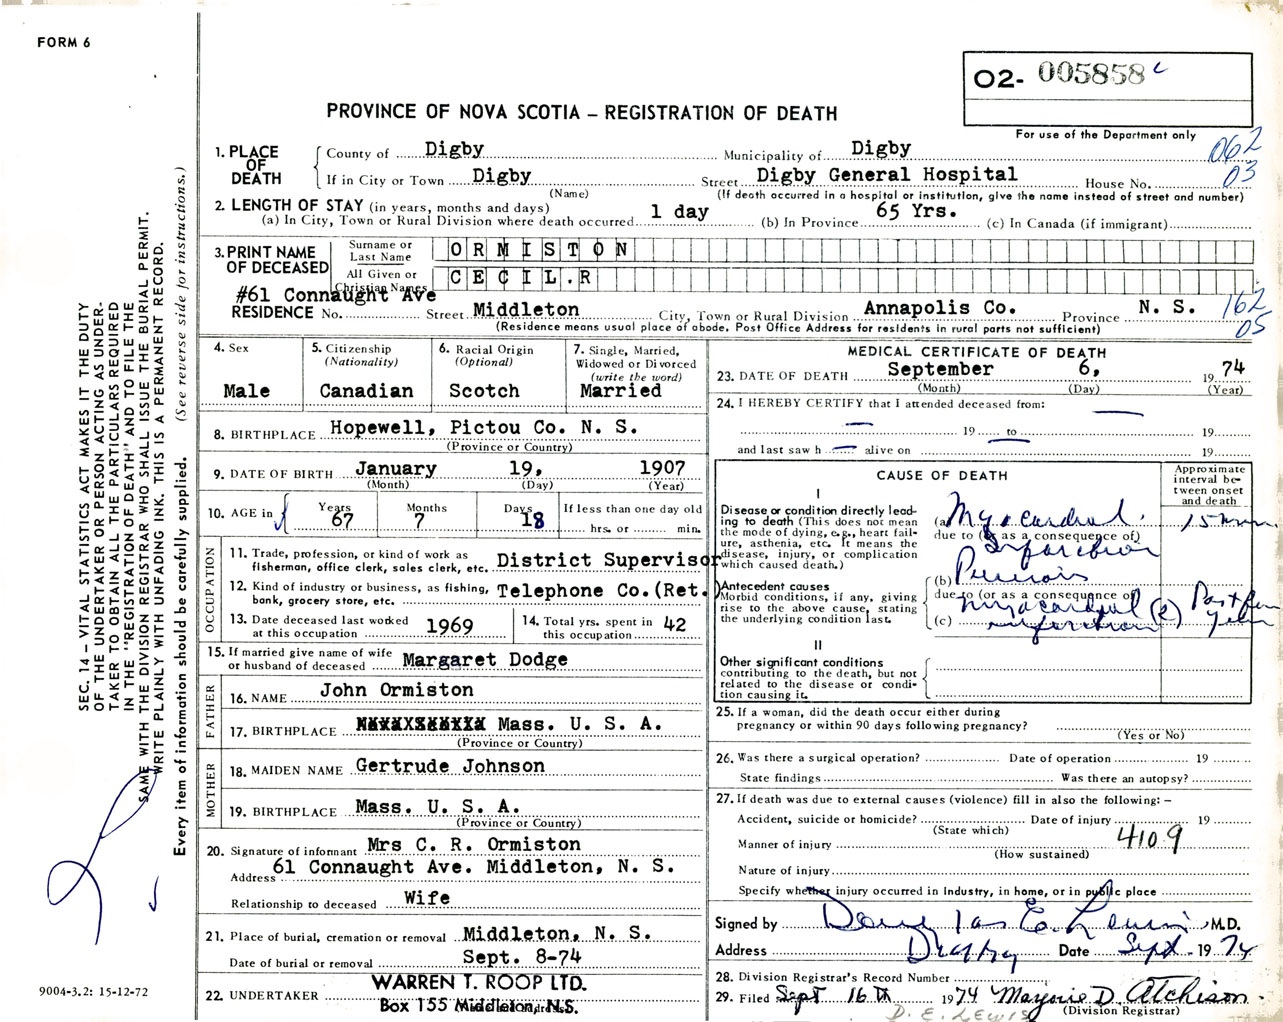 FORM 6
O2- 005858 c
PROVINCE OF NOVA SCOTIA – REGISTRATION OF DEATH
For use of the Department only
062
03
1. PLACE OF DEATH
County of Digby Municipality of Digby
If in City or Town Digby Street Digby General Hospital House No.
(Name) (If death occurred in a hospital or institution, give the name instead of street and number)
2. LENGTH OF STAY (in years, months and days)
(a) In City, Town or Rural Division where death occurred 1 day (b) In Province 65 Yrs. (c) In Canada (if immigrant)
3. PRINT NAME OF DECEASED
Surname or Last Name ORMISTON
All Given or Christian Names CECIL.R
#61 Connaught Ave
RESIDENCE No. Street Middleton City, Town or Rural Division Annapolis Co. Province N. S.
162
05
(Residence means usual place of abode. Post Office Address for residents in rural parts not sufficient)
4. Sex
Male
5. Citizenship
(Nationality)
Canadian
6. Racial Origin
(Optional)
Scotch
7. Single, Married, Widowed or Divorced
(write the word)
Married
8. BIRTHPLACE Hopewell, Pictou Co. N. S.
(Province or Country)
9. DATE OF BIRTH January 19, 1907
(Month) (Day) (Year)
10. AGE in
Years Months Days If less than one day old
67 7 18 hrs. or min.
OCCUPATION
11. Trade, profession, or kind of work as
fisherman, office clerk, sales clerk, etc. District Supervisor
12. Kind of industry or business, as fishing, Telephone Co.(Ret.)
bank, grocery store, etc.
13. Date deceased last worked
at this occupation 1969
14. Total yrs. spent in
this occupation 42
15. If married give name of wife
or husband of deceased Margaret Dodge
FATHER
16. NAME John Ormiston
17. BIRTHPLACE Mass. U. S. A.
(Province or Country)
MOTHER
18. MAIDEN NAME Gertrude Johnson
19. BIRTHPLACE Mass. U. S. A.
(Province or Country)
20. Signature of informant Mrs C. R. Ormiston
Address 61 Connaught Ave. Middleton, N. S.
Relationship to deceased Wife
21. Place of burial, cremation or removal Middleton, N. S.
Date of burial or removal Sept. 8-74
22. UNDERTAKER WARREN T. ROOP LTD.
Box 155 Middleton, N.S.
MEDICAL CERTIFICATE OF DEATH
23. DATE OF DEATH September 6, 19 74
(Month) (Day) (Year)
24. I HEREBY CERTIFY that I attended deceased from:
19 to 19
and last saw h alive on 19
CAUSE OF DEATH
Approximate interval between onset and death
I
Disease or condition directly leading to death (This does not mean the mode of dying, e.g., heart failure, asthenia, etc. It means the disease, injury, or complication which caused death.)
(a) Myocardial Infarction 15 min
due to (or as a consequence of)
Antecedent causes
Morbid conditions, if any, giving rise to the above cause, stating the underlying condition last.
(b) Previous
due to (or as a consequence of)
myocardial infarction
(c)
Past few
II
Other significant conditions contributing to the death, but not related to the disease or condition causing it.
25. If a woman, did the death occur either during
pregnancy or within 90 days following pregnancy?
(Yes or No)
26. Was there a surgical operation? Date of operation 19
State findings Was there an autopsy?
27. If death was due to external causes (violence) fill in also the following: –
Accident, suicide or homicide? Date of injury 19
(State which)
4109
Manner of injury
(How sustained)
Nature of injury
Specify whether injury occurred in Industry, in home, or in public place
Signed by Douglas E. Lewis, M.D.
Address Digby Date Sept. 19 74
28. Division Registrar's Record Number
29. Filed Sept 16th 1974 Marjorie D. Atchison
(Division Registrar)
D. E. LEWIS
SEC. 14 – VITAL STATISTICS ACT MAKES IT THE DUTY
OF THE UNDERTAKER OR PERSON ACTING AS UNDER-
TAKER TO OBTAIN ALL THE PARTICULARS REQUIRED
IN THE "REGISTRATION OF DEATH" AND TO FILE THE
SAME WITH THE DIVISION REGISTRAR WHO SHALL ISSUE THE BURIAL PERMIT.
WRITE PLAINLY WITH UNFADING INK. THIS IS A PERMANENT RECORD.
Every item of information should be carefully supplied. (See reverse side for instructions.)
9004-3.2: 15-12-72